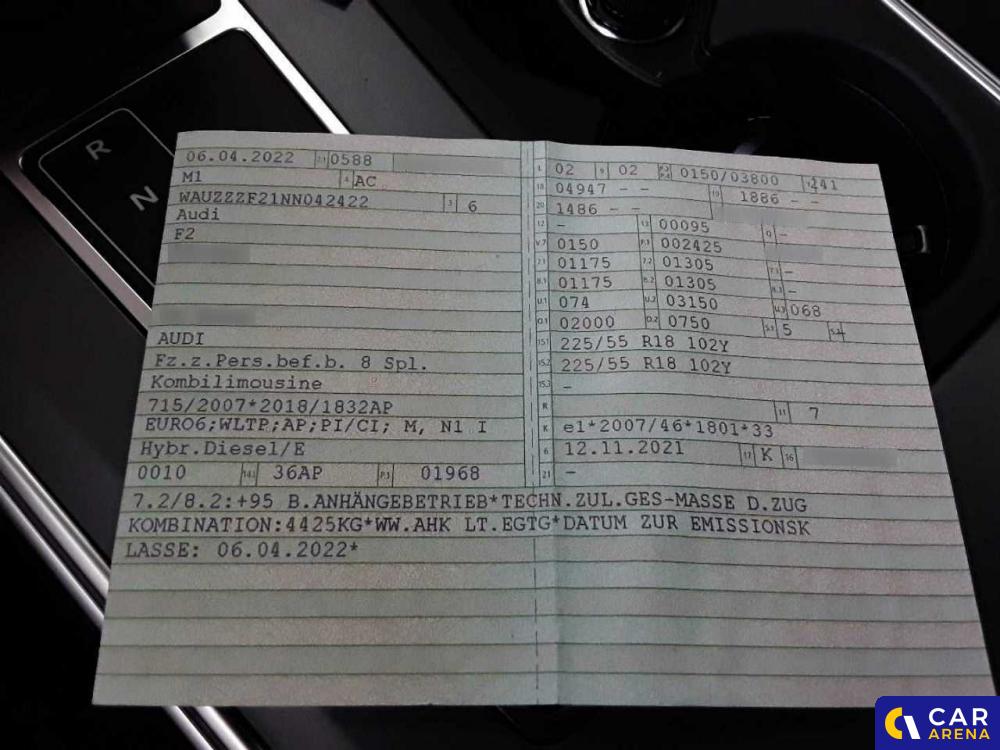 R
N
06.04.2022 2.1 0588
M1 4 AC
WAUZZZF21NN042422 3 6
Audi
F2
AUDI
Fz.z.Pers.bef.b. 8 Spl.
Kombilimousine
715/2007*2018/1832AP
EURO6;WLTP;AP;PI/CI; M, N1 I
Hybr.Diesel/E
0010 14.1 36AP P.3 01968
L 02 9 02 P.2 P.4 0150/03800 241
18 04947 - - 19 1886 - -
20 1486 - -
12 - 13 00095 Q -
V.7 0150 F.1 002425
7.1 01175 7.2 01305 7.3 -
8.1 01175 8.2 01305 8.3 -
U.1 074 U.2 03150 U.3 068
O.1 02000 O.2 0750 S.1 5 S.2
15.1 225/55 R18 102Y
15.2 225/55 R18 102Y
15.3 -
R 11 7
K e1*2007/46*1801*33
6 12.11.2021 17 K 16
21 -
7.2/8.2:+95 B.ANHÄNGEBETRIEB*TECHN.ZUL.GES-MASSE D.ZUG
KOMBINATION:4425KG*WW.AHK LT.EGTG*DATUM ZUR EMISSIONSK
LASSE: 06.04.2022*
CAR
ARENA